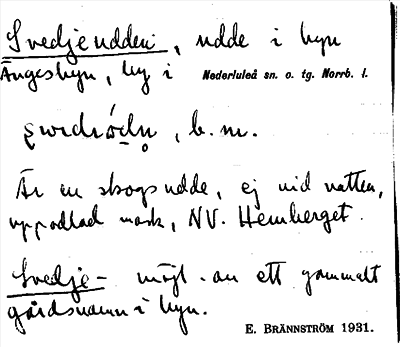 Svedjeudden, udde i byn
Ängesbyn, by i Nederluleå sn. o. tg. Norrb. l.
, b. m.
Är en skogsudde, ej vid vatten,
uppodlad mark, NV. Hemberget.
Svedje- möjl. av ett gammalt
gårdsnamn i byn.
E. BRÄNNSTRÖM 1931.